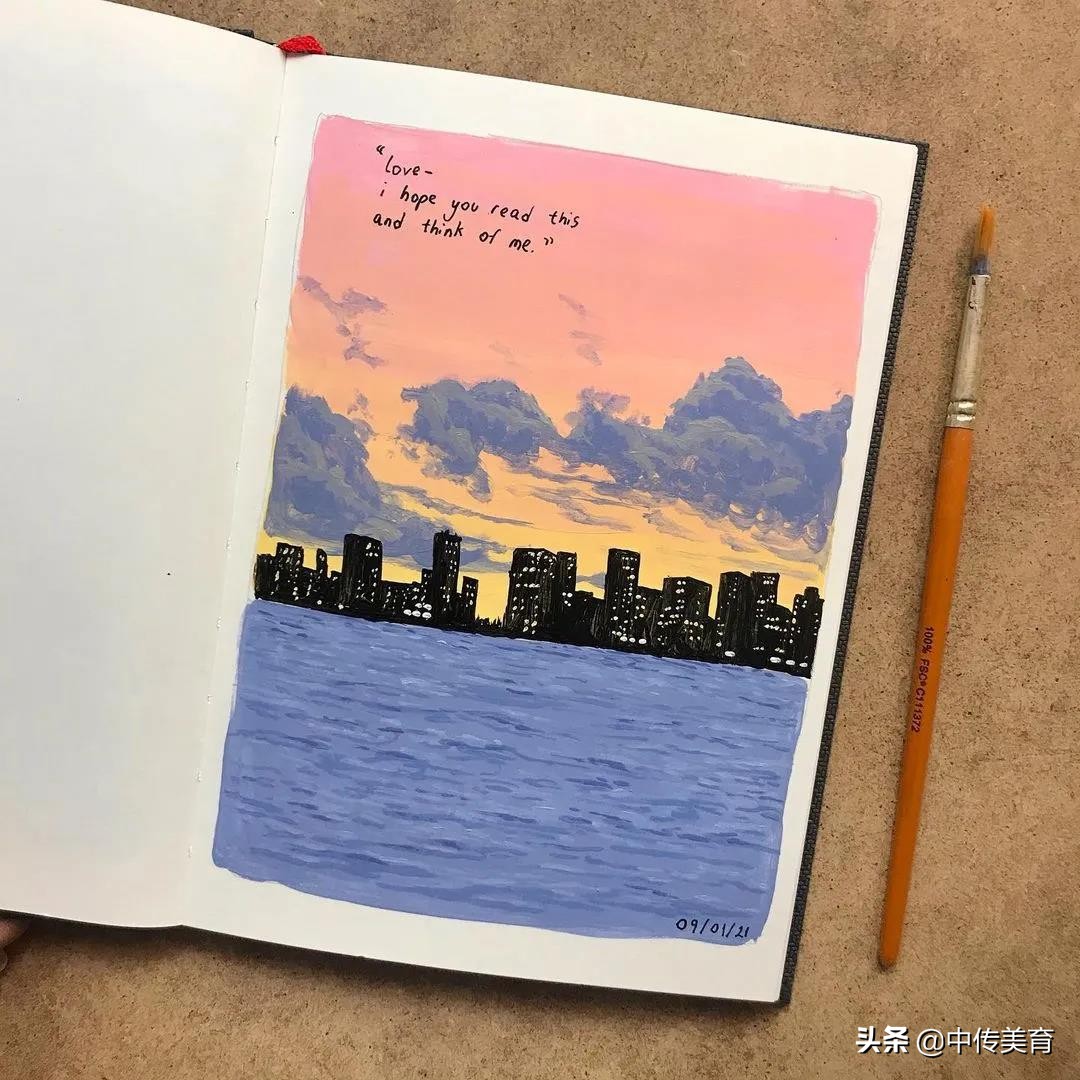 “love-
i hope you read this
and think of me.”
09/01/21
100% FSC® C111372
头条 @中传美育